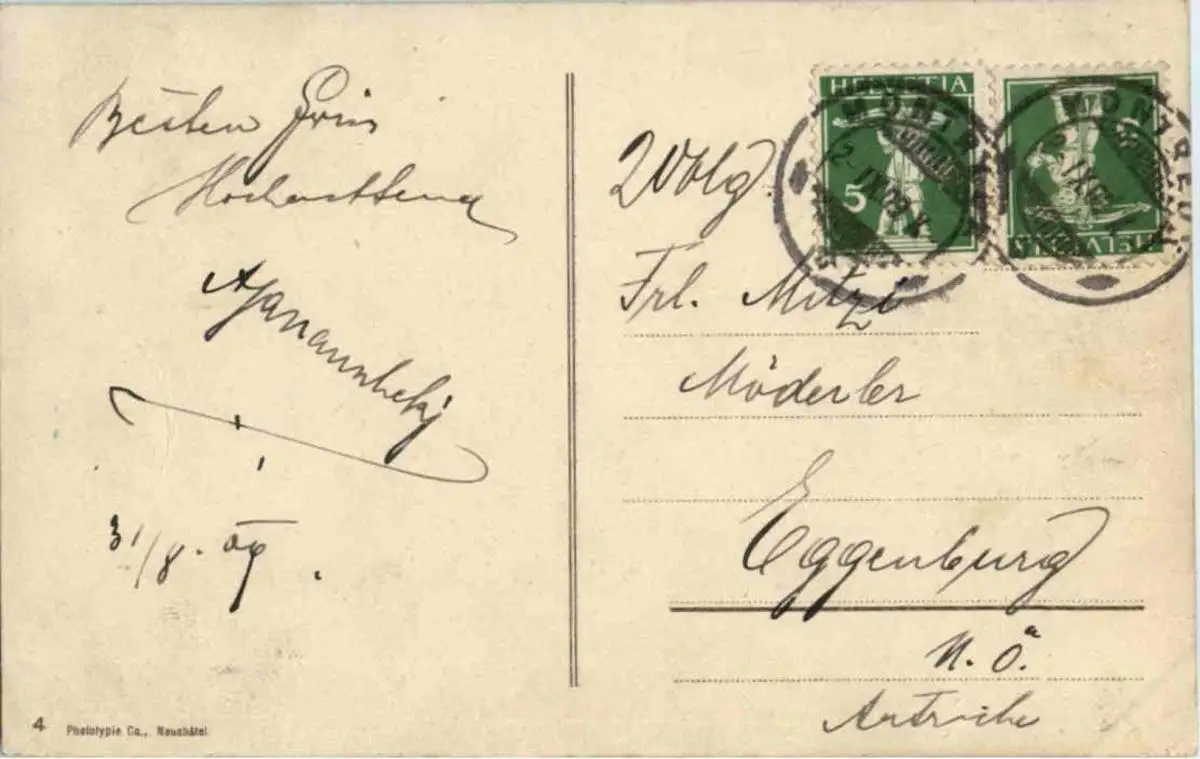 Besten Gruß
31/8. 09.
4 Phototypie Co., Neuchâtel
HELVETIA
5
HELVETIA
5
MONTREUX
Frl. Mitzi
Möderler
Eggenburg
N. Ö.
Autriche